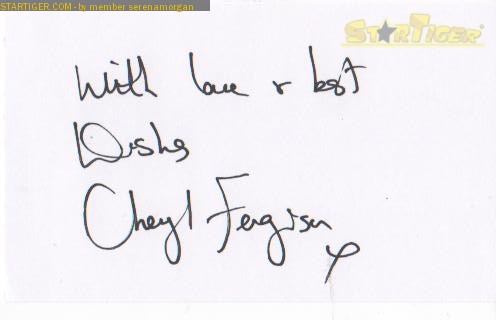 STARTIGER.COM - by member serenamorgan
STARTIGER
With love & best
Wishes
Cheryl Fergison
x